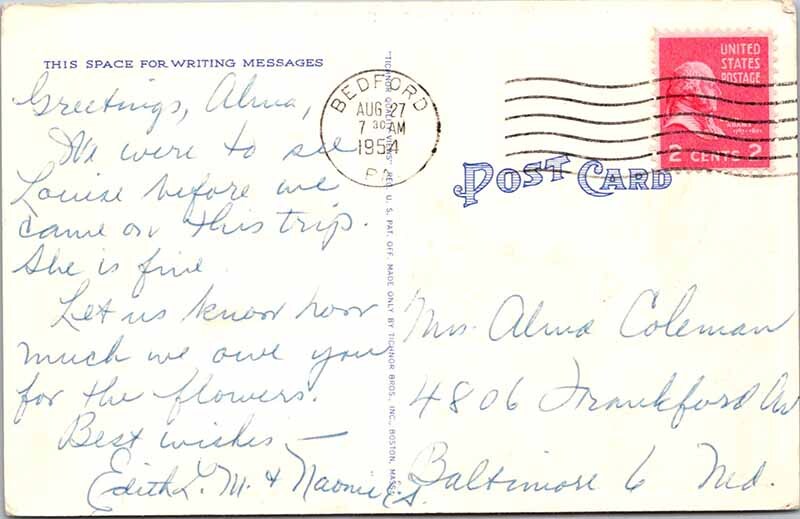 THIS SPACE FOR WRITING MESSAGES
Greetings, Alma,
We were to see
Louise before we
came on this trip.
She is fine.
Let us know how
much we owe you
for the flowers.
Best wishes —
Edith L. M. & Naomi E. S.
"TICHNOR QUALITY VIEWS" REG. U. S. PAT. OFF. MADE ONLY BY TICHNOR BROS., INC., BOSTON, MASS.
BEDFORD
AUG 27
7 30 AM
1954
PA.
UNITED
STATES
POSTAGE
ADAMS
2 CENTS 2
POST CARD
Mrs. Alma Coleman
4806 Frankford Av
Baltimore 6 Md.